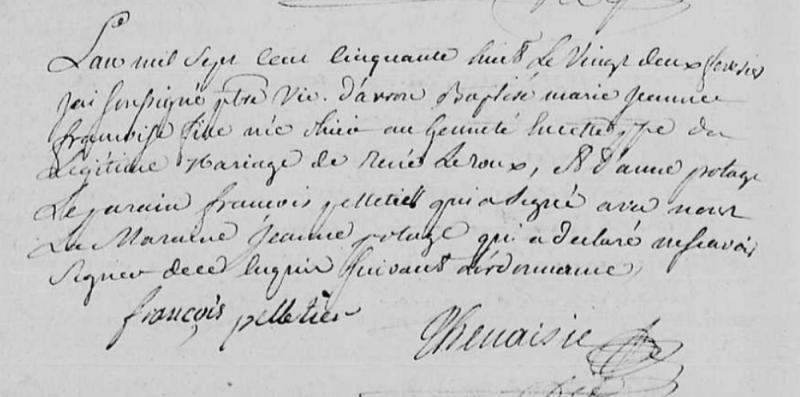 L'an mil sept cent cinquante huit le vingt deux fevrier
j'ai soussigné ptre vic. d'avron Baptisé marie jeanne
francoise fille née hier au du
Légitime Mariage de René Leroux, et d'anne potage
Le parain francois pelletier qui a signé avec nous
La Maraine jeanne potage qui a declaré ne scavoir
signer de ce enquis suivant l'ordonnance
françois pelletier
Thenaisie